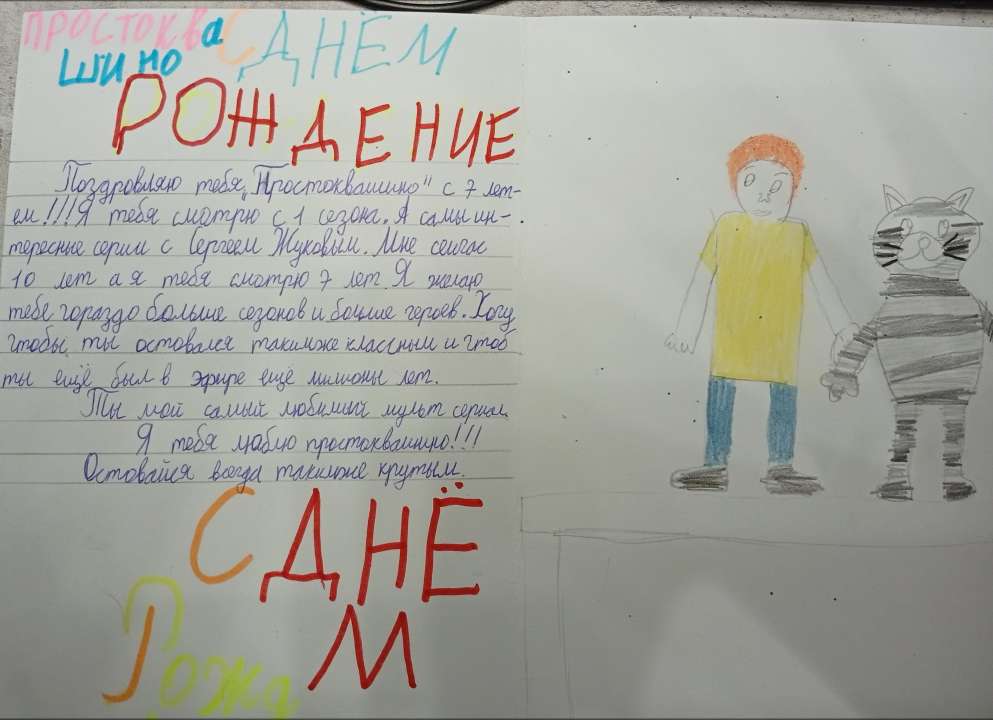 ПРОСТОКВа
ШИНО
С ДНЁМ
РОЖДЕНИЕ
Поздровляю тебя „Простоквашино" с 7 лет-
ем!!! Я тебя смотрю с 1 сезона. А самы ин-
тересные серии с Сергеем Жуковым. Мне сейчас
10 лет а я тебя смотрю 7 лет. Я желаю
тебе гораздо больше сезонов и больше героев. Хочу
чтобы ты оставался такимже классным и чтоб
ты ещё был в эфире ещё милионы лет.
Ты мой самый любимый мульт сериал.
Я тебя люблю простоквашино!!!
Оставайся всегда такимже крутым.
С ДНЁ
М
Рожд